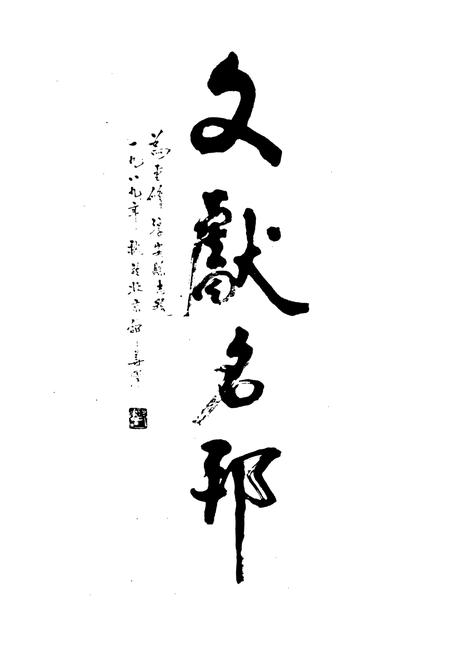 文獻名邦
為重修淳安縣志題
一九八九年秋於北京